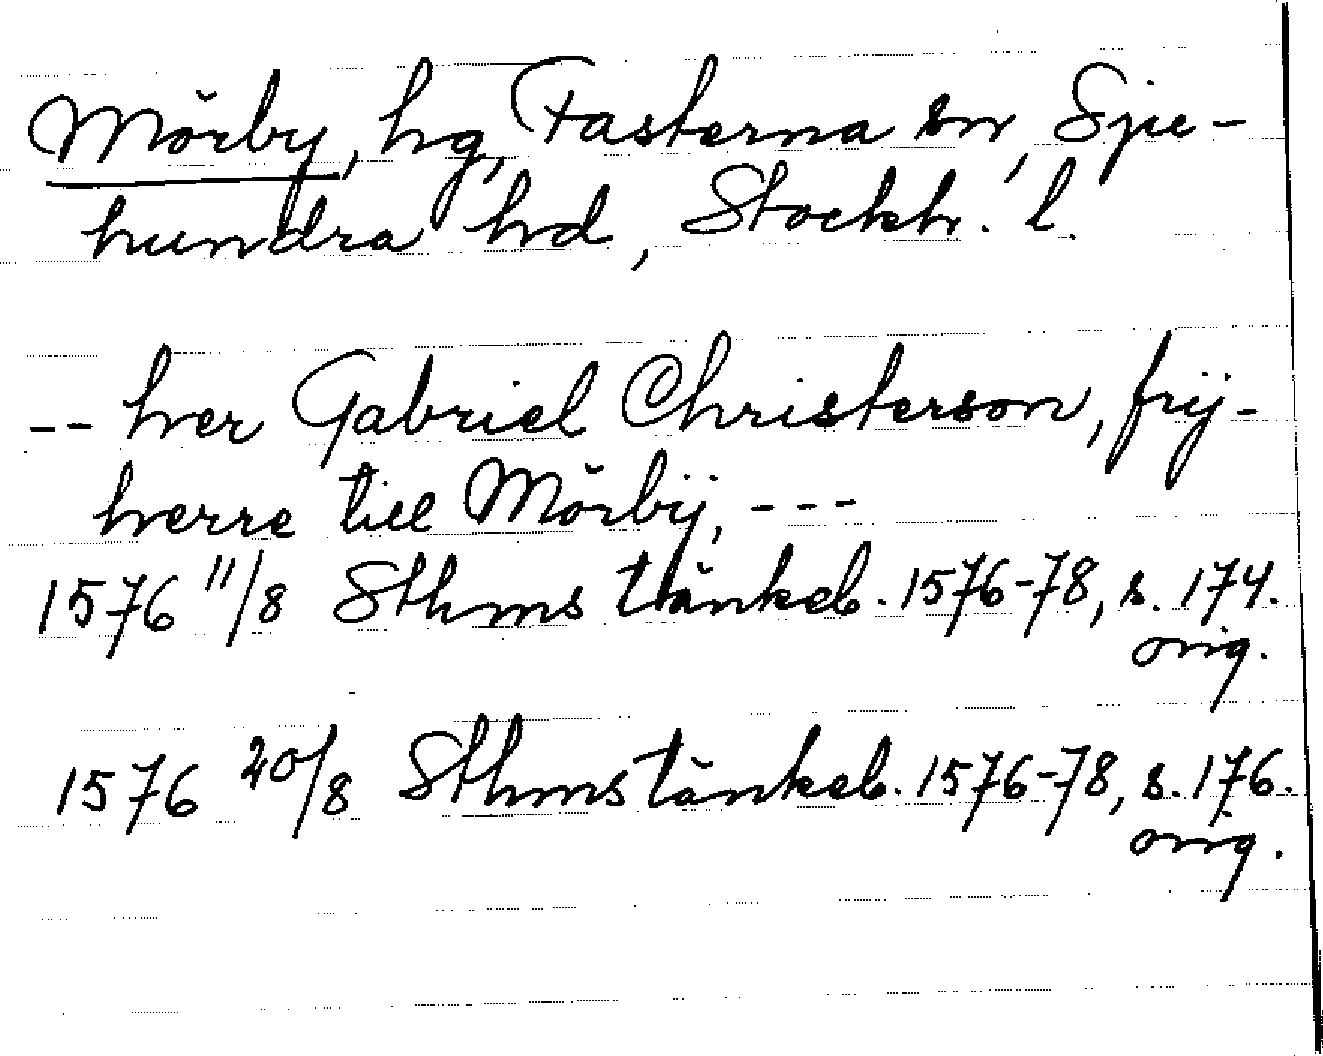 Mörby, hg, Fasterna sn, Sju-
hundra hd, Stockh. l.
-- her Gabriel Christerson, frij-
herre till Mörbij, ---
1576 11/8 Sthms tänkeb. 1576-78, s. 174.
orig.
1576 20/8 Sthms tänkeb. 1576-78, s. 176.
orig.